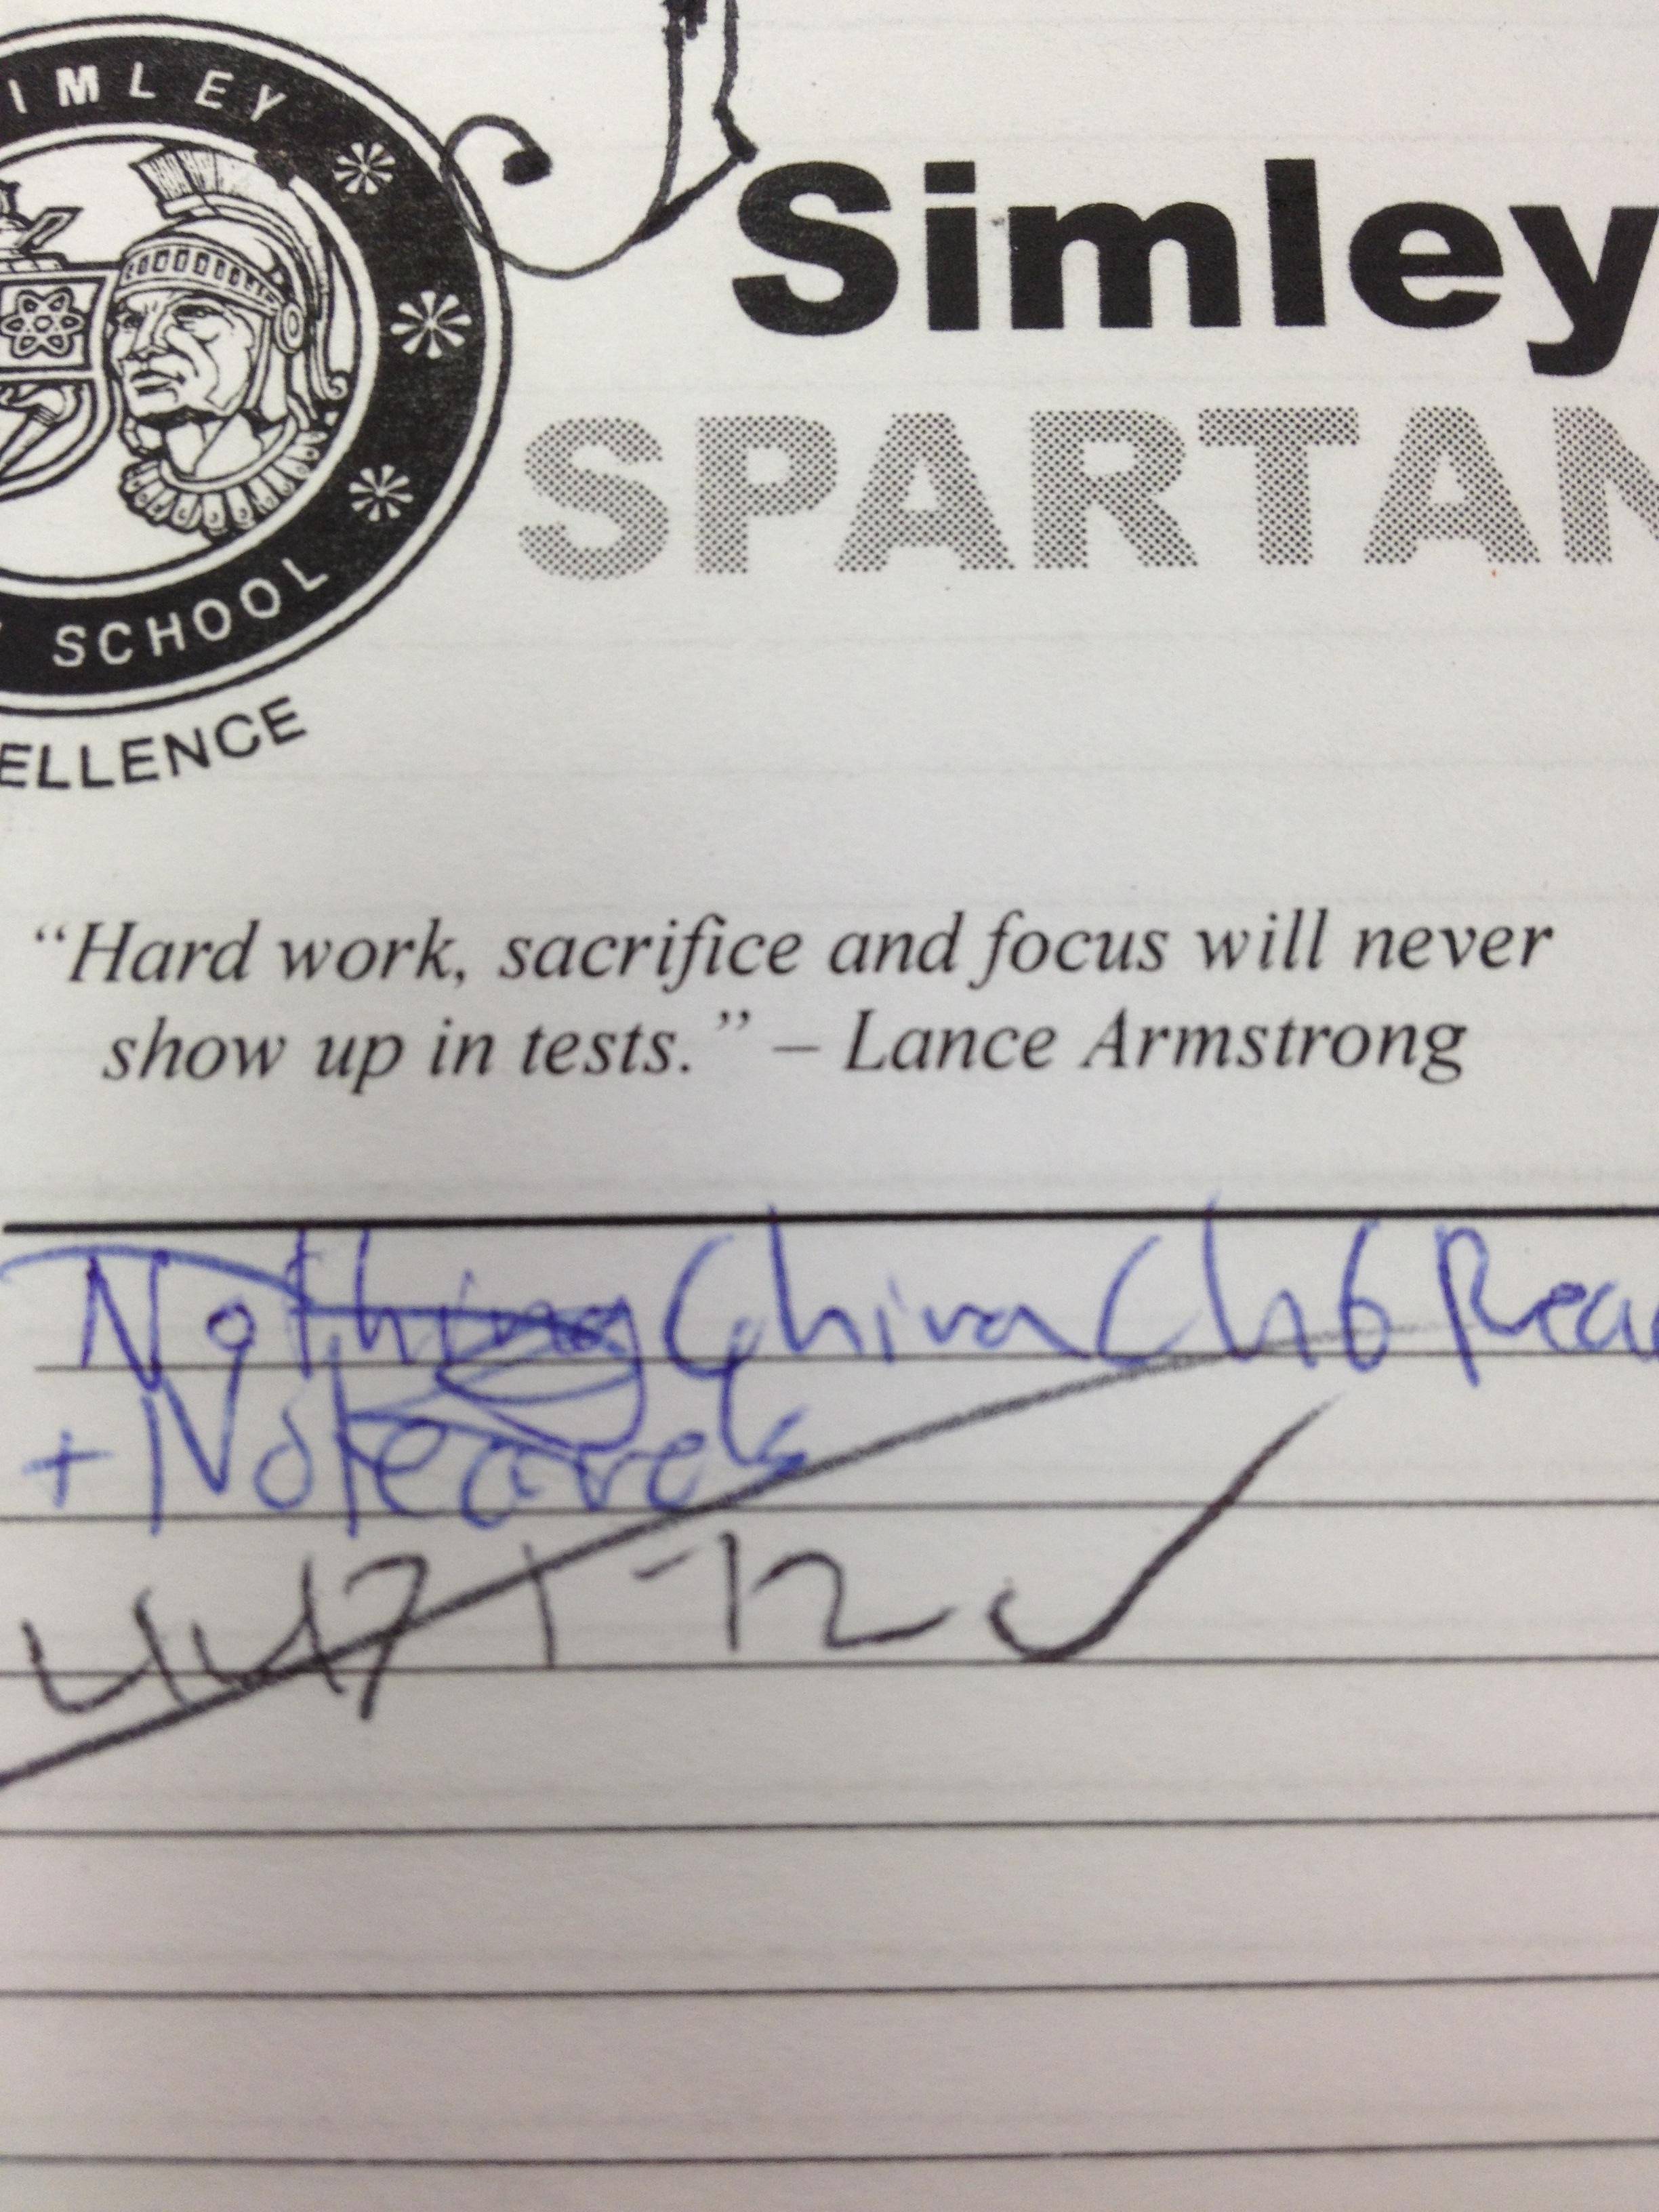 IMLEY
Simley
SPARTAN
SCHOOL
ELLENCE
“Hard work, sacrifice and focus will never
show up in tests.” – Lance Armstrong
Nothing China Ch 6 Rea
+ Notecards